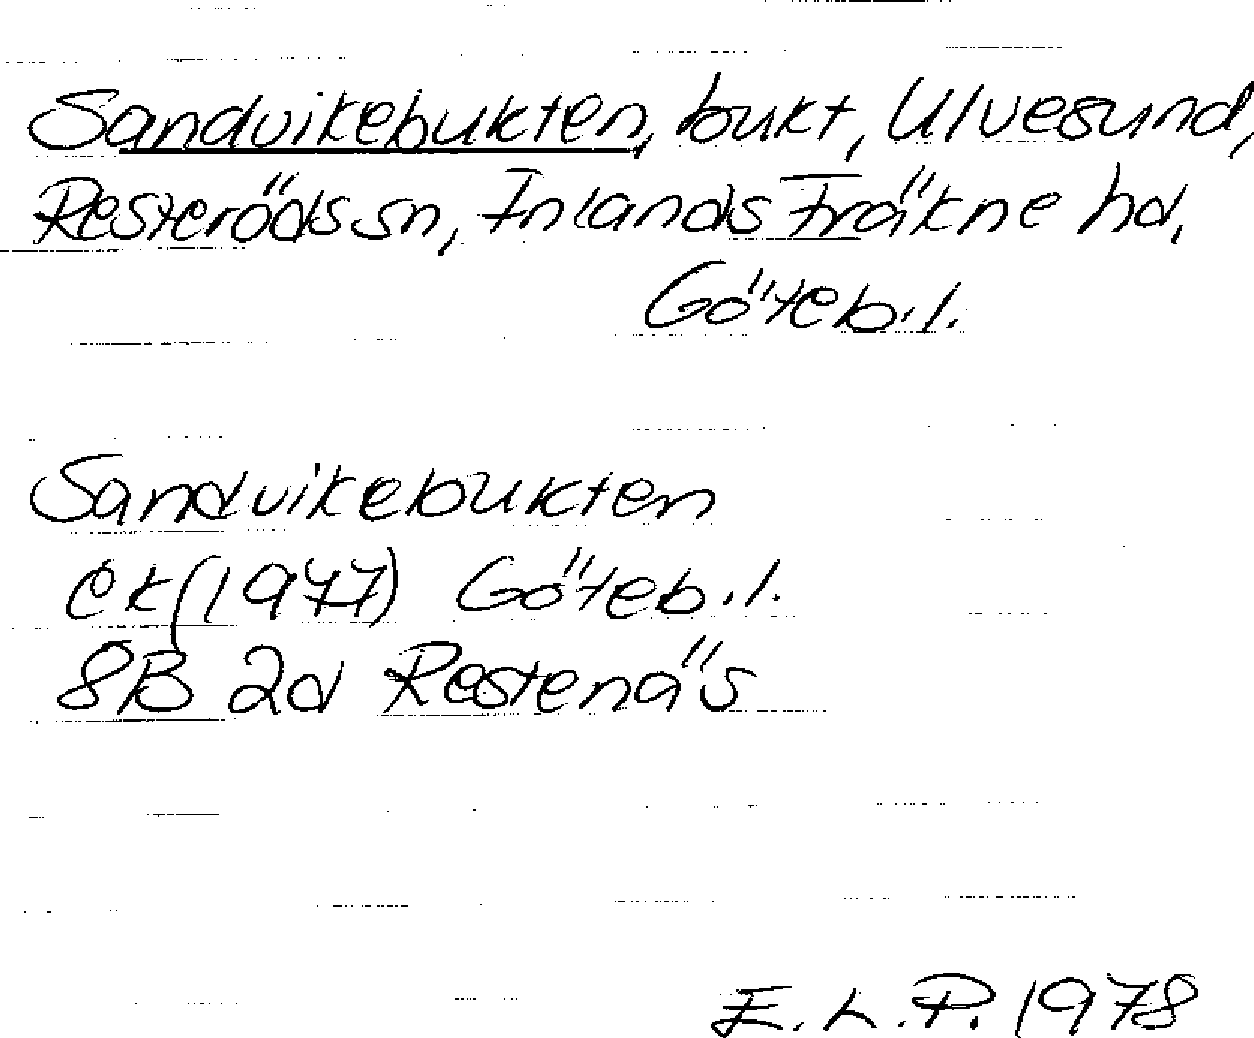 Sandvikebukten, bukt, Ulvesund,
Resteröds sn, Inlands Fräkne hd,
Göteb.l.
Sandvikebukten
ek (1977) Göteb.l.
8B 2d Restenäs
E.L.P. 1978